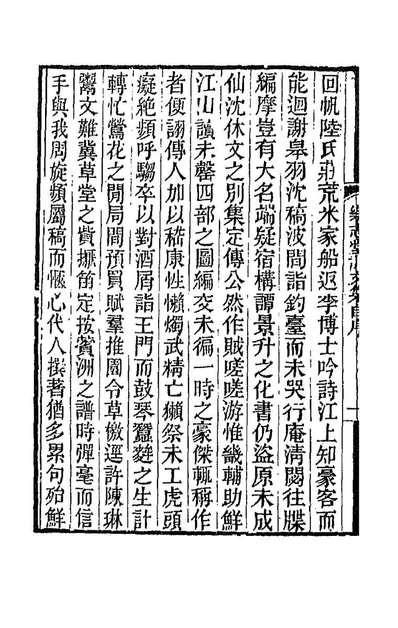 回帆陸氏莊荒米家船返李博士吟詩江上知豪客而
能迴謝皋羽沈稿波間詣釣臺而未哭行庵清閟往牒
編摩豈有大名端疑宿構譚景升之化書仍盜原未成
仙沈休文之別集定傳公然作賊嗟嗟游惟畿輔助鮮
江山讖未罄四部之圖編交未徧一時之豪傑輒稱作
者便詡傳人加以嵇康性懶燭武精亡獺祭未工虎頭
癡絶頻呼騶卒以對酒屑詣王門而鼓琴蠶之生計
轉忙鶯花之閒局間預買賦羣推園令草檄遥許陳琳
鬻文難冀草堂之貲擫笛定按薲洲之譜時彈毫而信
手與我周旋頻屬稿而愜心代人撰著猶多累句殆鮮